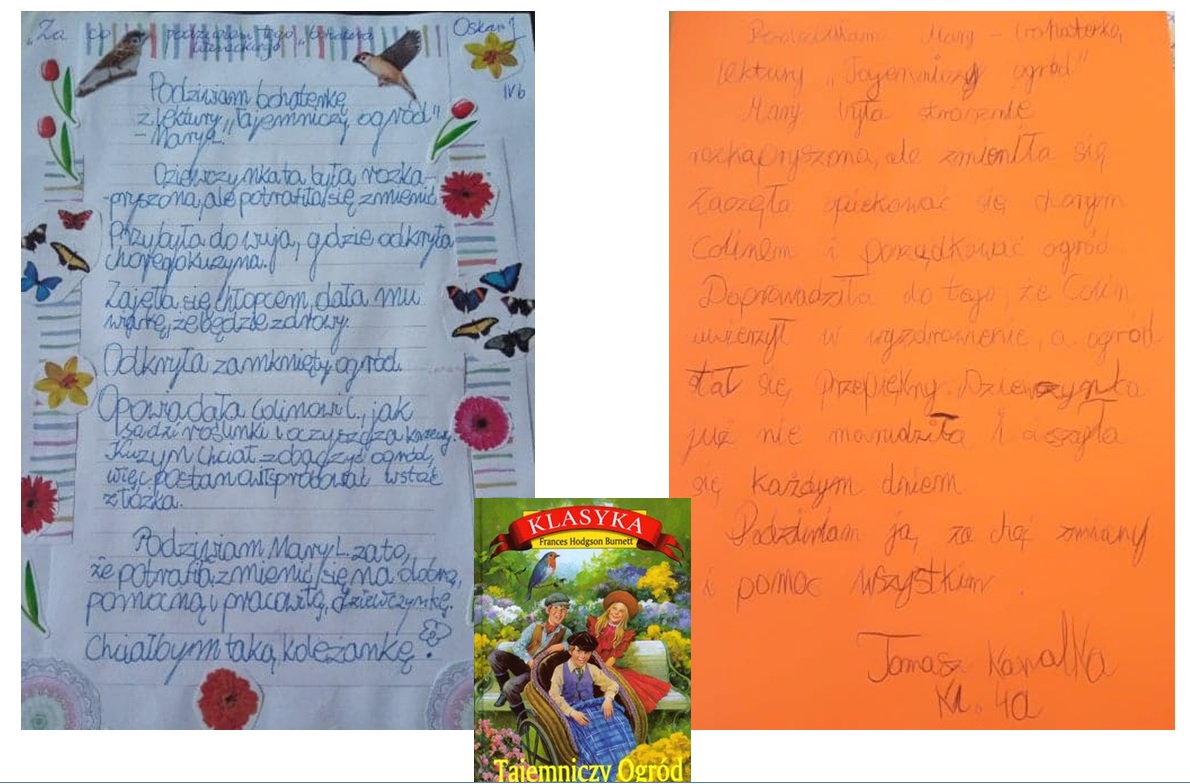 "Za co podziwiam tego bohatera
literackiego"
Oskar J
IV b
Podziwam bohaterkę
z lektury „Tajemniczy ogród"
– Mary L.
Dziewczynka ta była rozka-
-pryszona, ale potrafiła się zmienić.
Przybyła do wuja, gdzie odkryła
chorego kuzyna.
Zajęła się chłopcem, dała mu
wiarę, że będzie zdrowy.
Odkryła zamknięty ogród.
Opowiadała Colinowi C., jak
sadzi roślinki i oczyszcza krzewy.
Kuzyn chciał zobaczyć ogród,
więc postanowił spróbować wstać
z łóżka.
Podziwiam Mary L. za to,
że potrafiła zmienić się na dobrą,
pomocną i pracowitą dziewczynkę.
Chciałbym taką koleżankę.
KLASYKA
Frances Hodgson Burnett
Tajemniczy Ogród
Podziwiam Mary – bohaterkę
lektury „Tajemniczy ogród"
Mary była strasznie
rozkapryszona, ale zmieniła się
Zaczęła opiekować się chorym
Colinem i porządkować ogród
Doprowadziła do tego, że Colin
uwierzył w wyzdrowienie, a ogród
stał się przepiękny. Dziewczynka
już nie marudziła i cieszyła
się każdym dniem
Podziwiam ją za chęć zmiany
i pomoc wszystkim.
Tomasz Kawalka
Kl. 4a